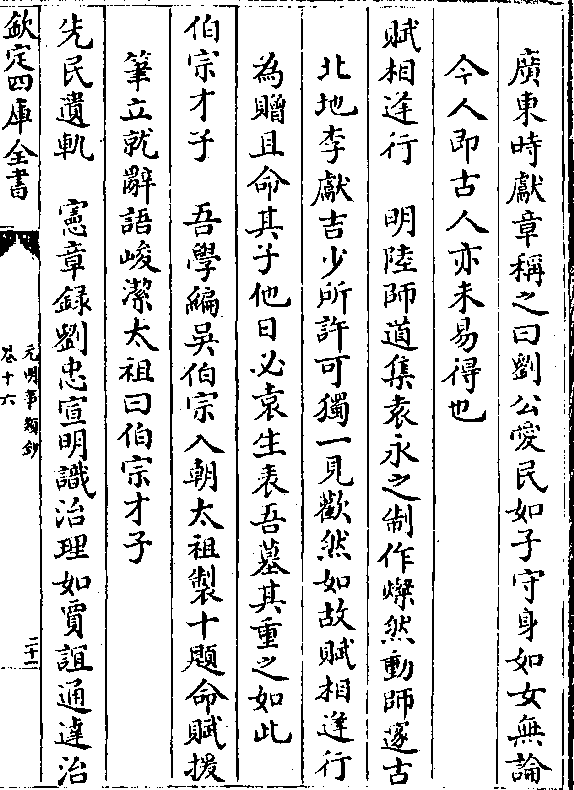 廣東時獻章稱之曰劉公愛民如子守身如女無論
今人即古人亦未易得也
賦相逢行　明陸師道集袁永之制作燦然動師遂古
北地李獻吉少所許可獨一見歡然如故賦相逢行
為贈且命其子他日必袁生表吾墓其重之如此
伯宗才子　吾學編吳伯宗入朝太祖製十題命賦援
筆立就辭語峻潔太祖曰伯宗才子
先民遺軌　憲章錄劉忠宣明識治理如賈誼通達治
欽定四庫全書
元明事類鈔
卷十六
二十一